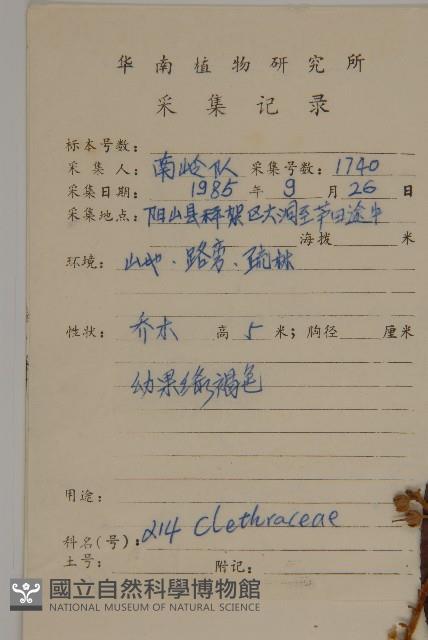 华南植物研究所
采集记录
标本号数:
采集人: 南岭队 采集号数: 1740
采集日期: 1985 年 9 月 26 日
采集地点: 阳山县秤架区大洞至茅田途中
海拨 米
环境: 山地、路旁、疏林
性状: 乔木 高 5 米; 胸径 厘米
幼果绿褐色
用途:
科名(号): 214 Clethraceae
土号: 附记:
國立自然科學博物館
NATIONAL MUSEUM OF NATURAL SCIENCE